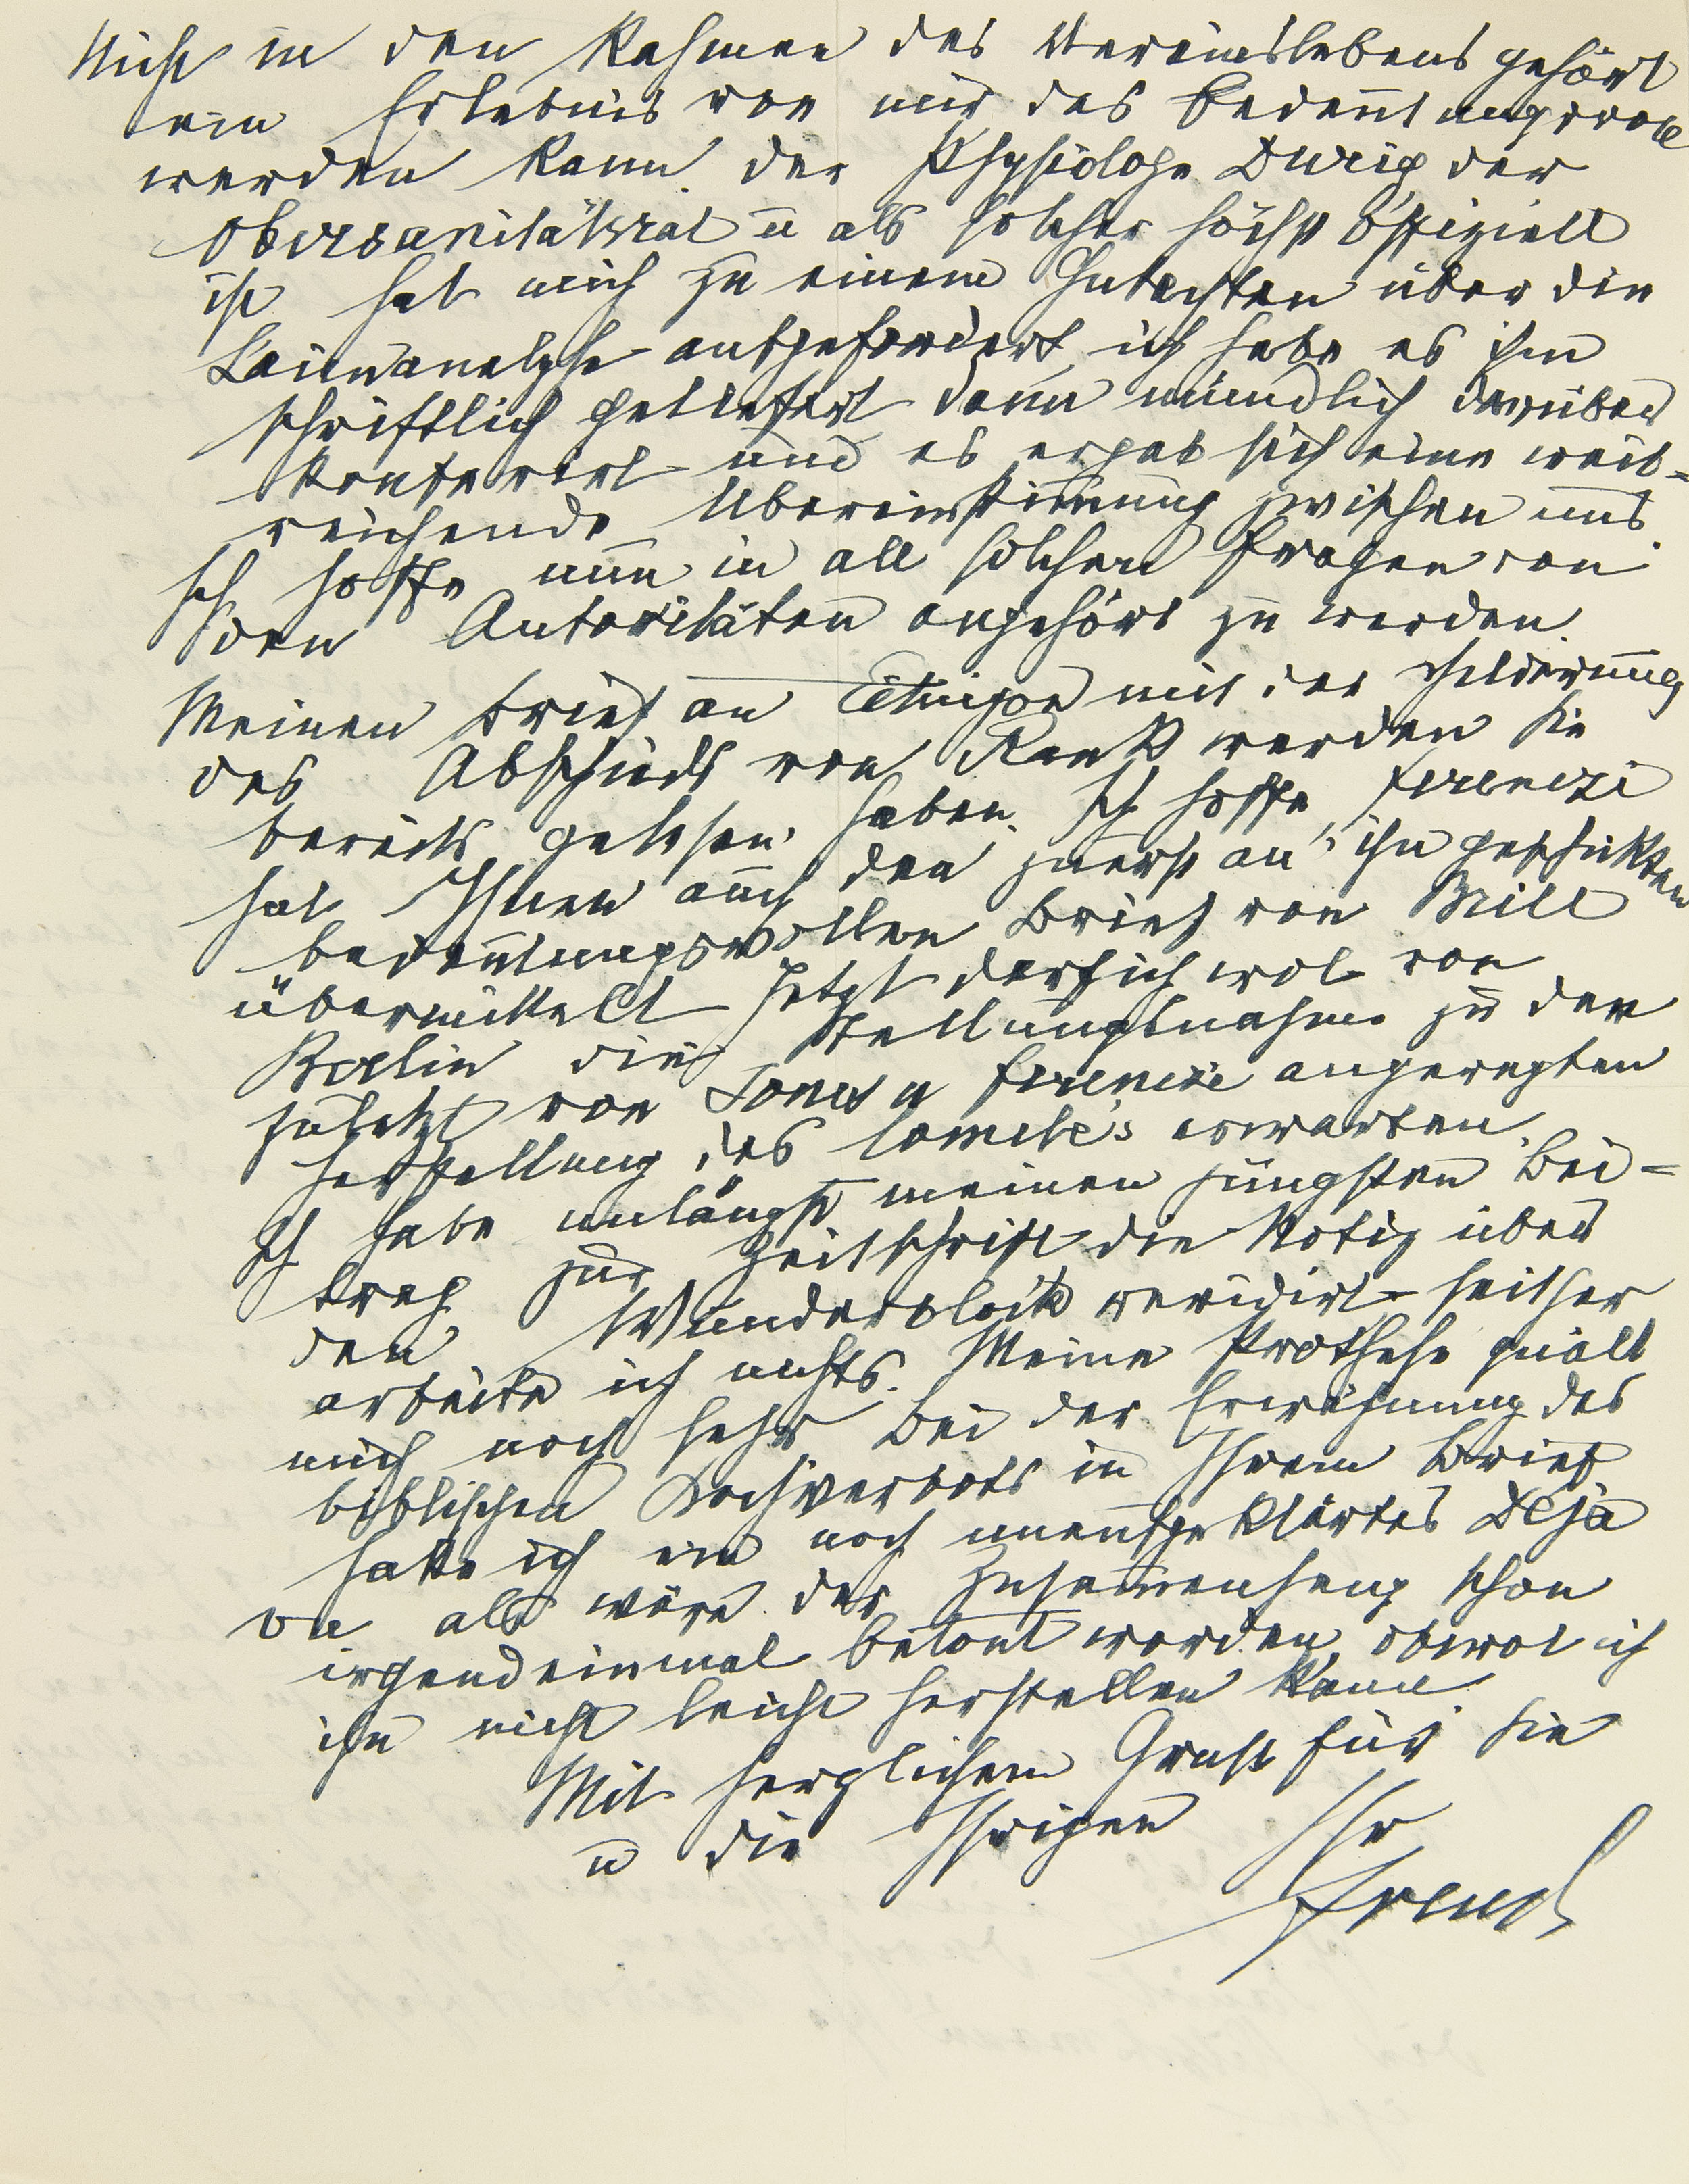 Nicht in den Rahmen des Vereinslebens gehört
ein Erlebnis von mir das bedeutungsvoll
werden kann. Der Physiologe Durig der
Obersanitätsrat u als solcher höchst offiziell
ist hat mich zu einem Gutachten über die
Laienanalyse aufgefordert, ich habe es ihm
schriftlich geliefert dann mündlich darüber
konferirt und es ergab sich eine weit-
reichende Übereinstimmung zwischen uns.
Ich hoffe nun in all solchen Fragen von
den Autoritäten angehört zu werden.
Meinen Brief an Eitingon mit der Schilderung
des Abschieds von Rank werden Sie
bereits gelesen haben. Ich hoffe Ferenczi
hat Ihnen auch den zuerst an ihn geschickten
bedeutungsvollen Brief von Brill
übermittelt. Jetzt darf ich wol von
Berlin die Stellungnahme zu der
zuletzt von Jones u Ferenczi angeregten
Herstellung des Comités erwarten.
Ich habe unlängst meinen jüngsten Bei-
trag zur Zeitschrift die Notiz über
den Wunderblock revidirt seither
arbeite ich nichts. Meine Prothese quält
mich noch sehr. Bei der Erwähnung des
biblischen Kochverbots in Ihrem Brief
hatte ich ein noch unaufgeklärtes Déjà
vu als wäre der Zusammenhang schon
irgendeinmal betont worden, obwol ich
ihn nicht leicht herstellen kann.
Mit herzlichem Gruß für Sie
u die Ihrigen Ihr
Freud